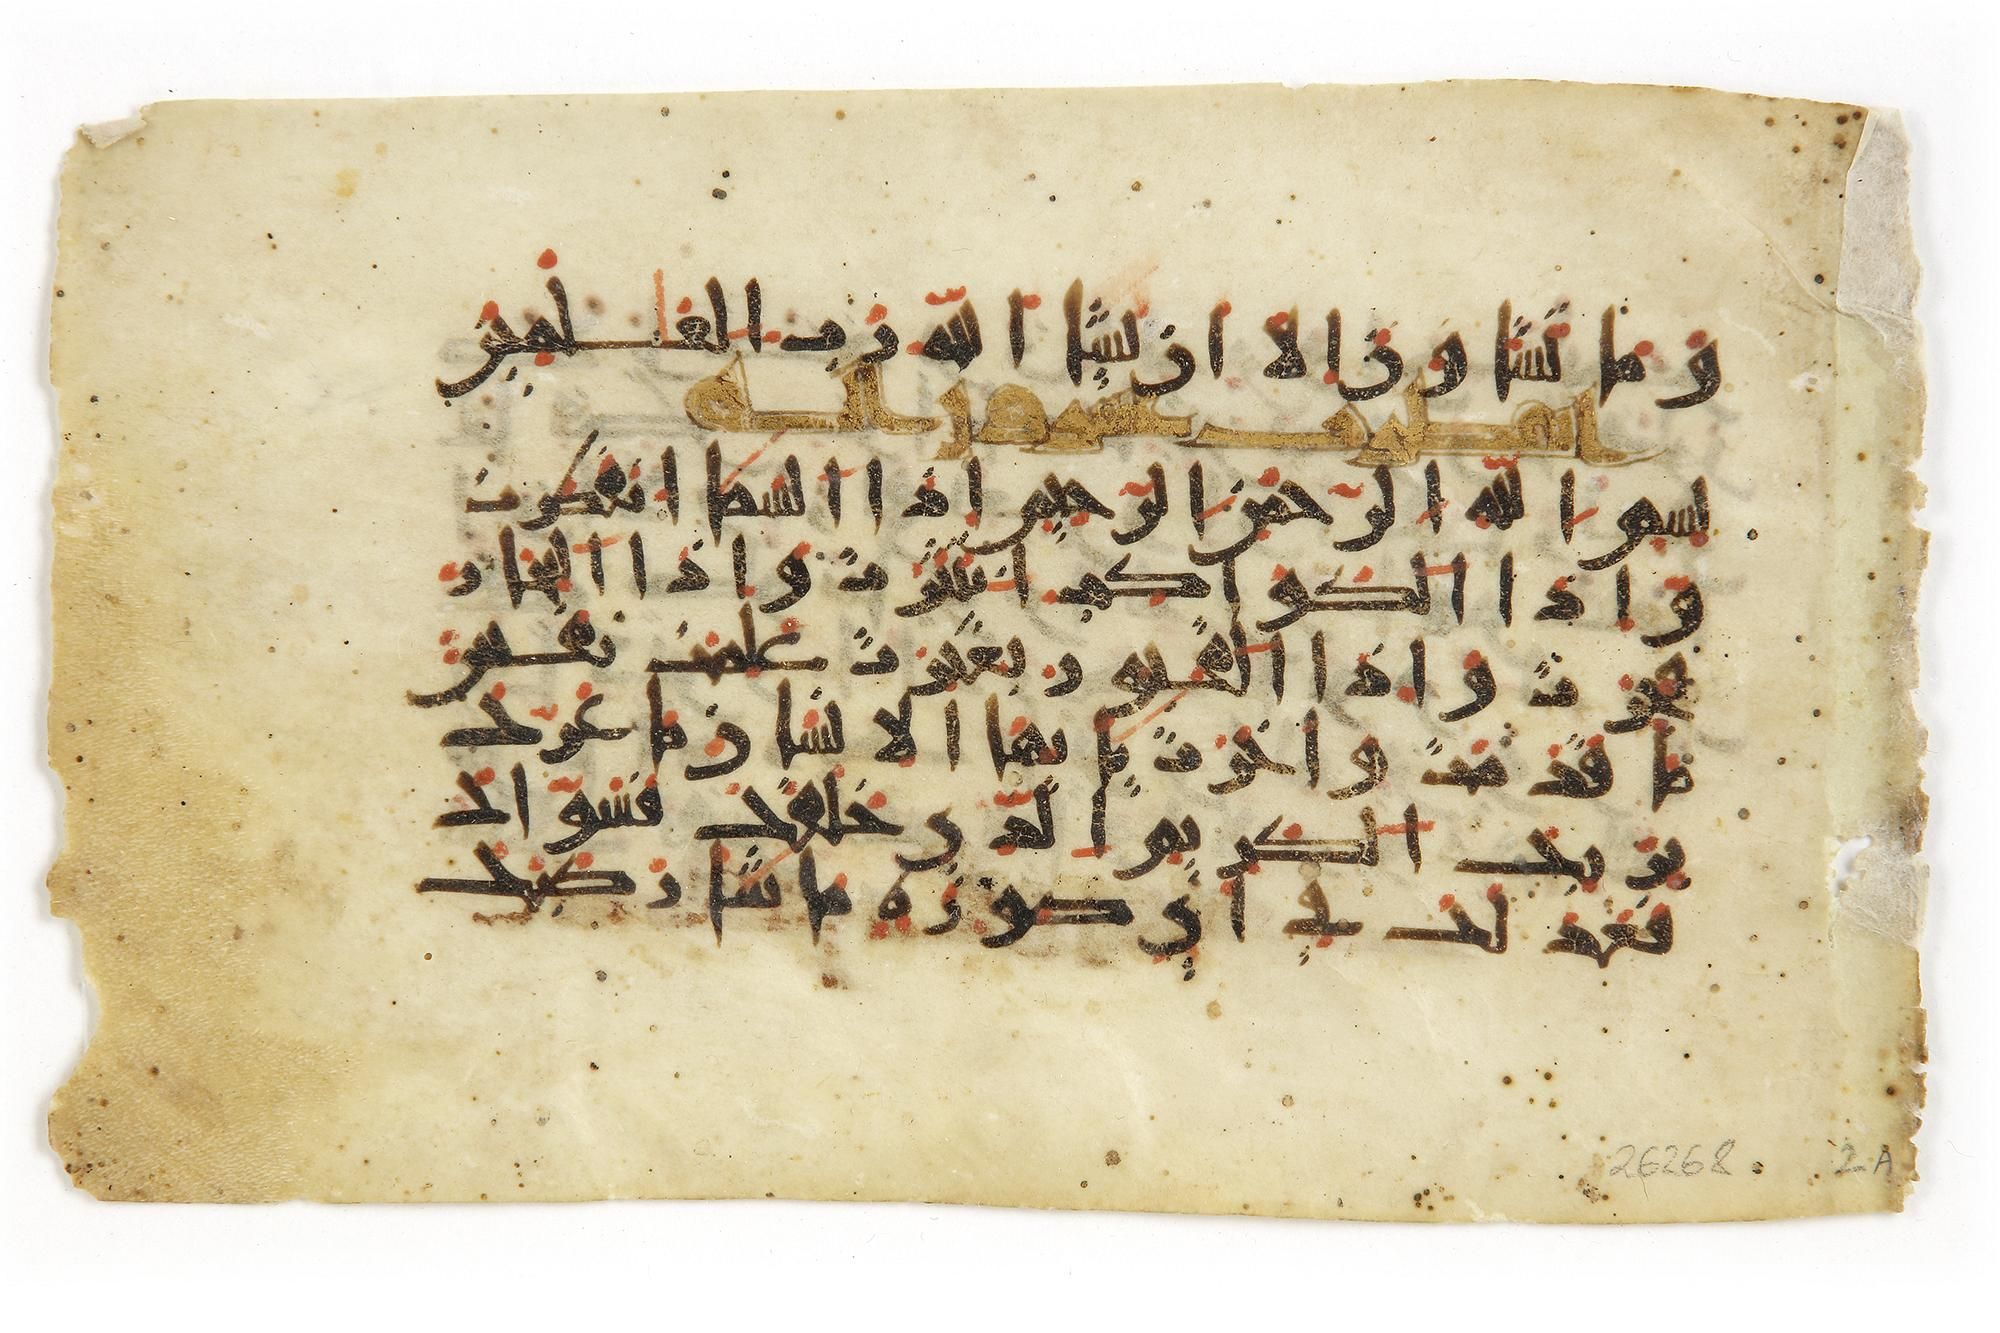 وما تشاون الا ان يشا الله رب العلمين
انفطرت عشرون ايه
بسم الله الرحمن الرحيم اذا السما انفطرت
واذا الكواكب انتثرت واذا البحار
فجرت واذا القبور بعثرت علمت نفس
ما قدمت واخرت يايها الانسا ن ما غرك
بربك الكريم الذي خلقك فسواك
فعدلك في اي صورة ما شا ركبك
26268 2A